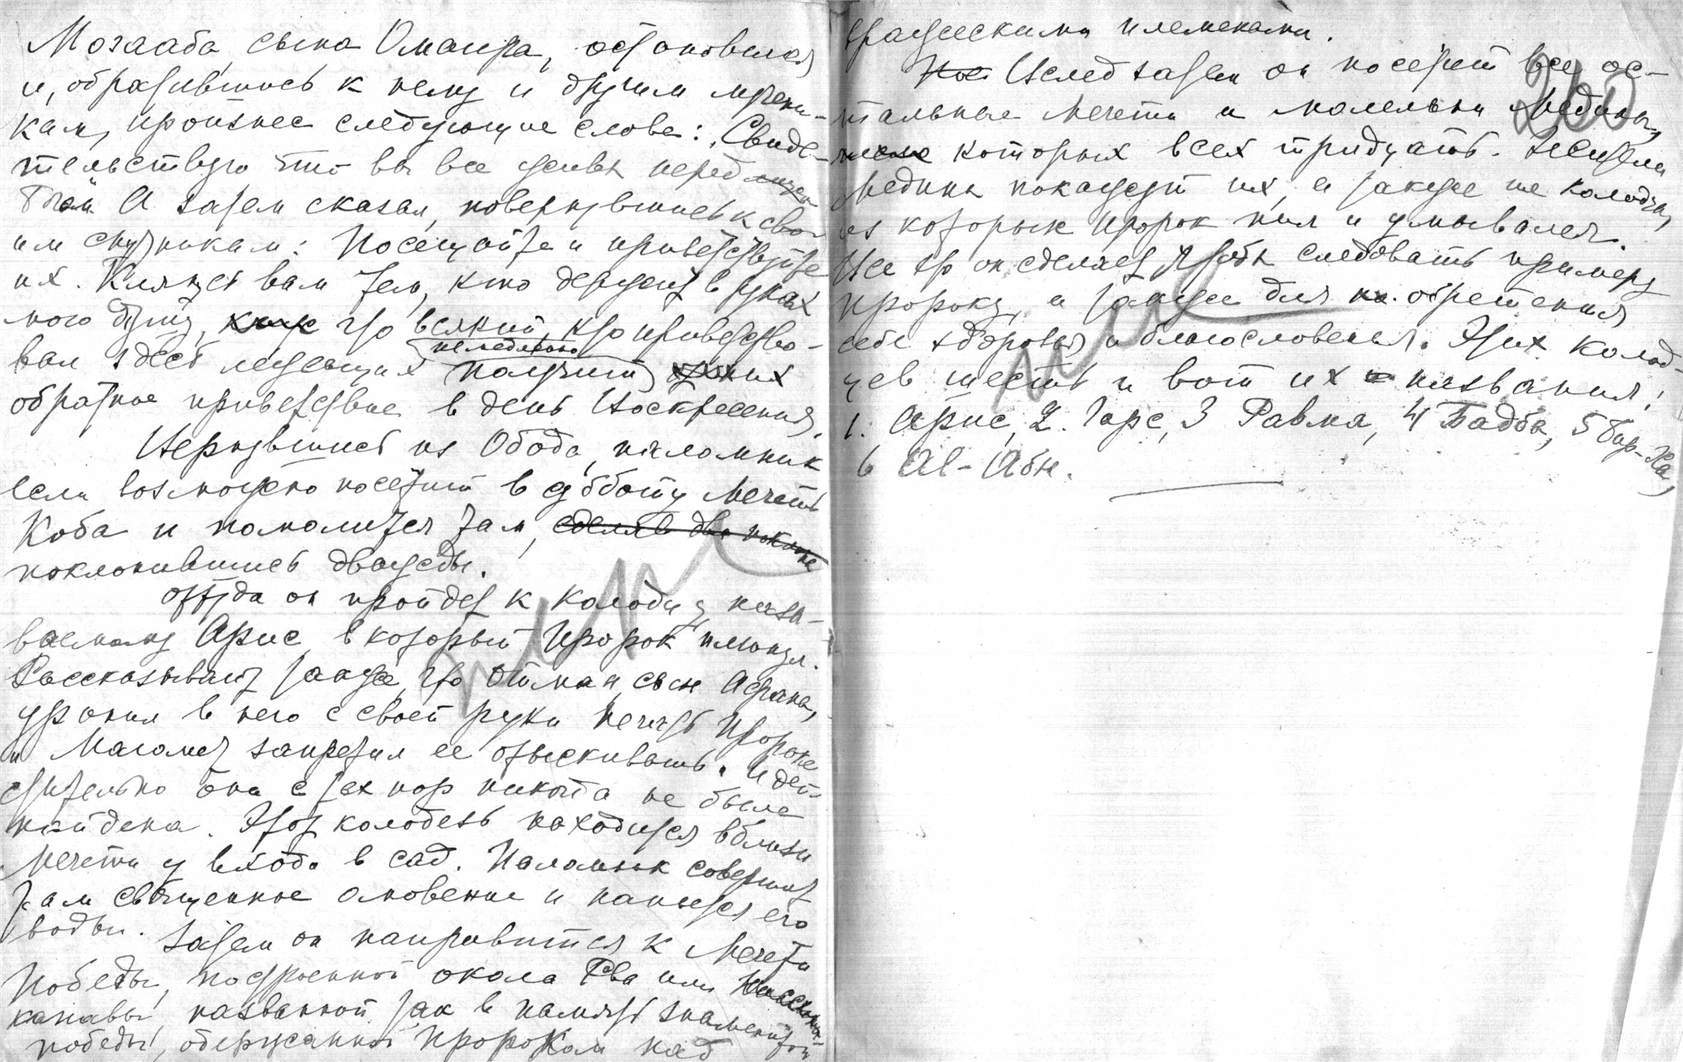 Мозааба, сына Омаира, остановился
и, обратившись к нему и другим мучени-
кам, произнес следующие слова: „Свиде-
тельствую что вы все живы перед
богом А затем сказал, повернувшись к сво-
им спутникам: Посещайте и приветствуйте
их. Клянусь вам тем, кто держит в руках
мою душу, что всякий, кто приветство-
вал здесь лежащих немедленно получит от них
обратное приветствие в день Воскресения.
Вернувшись из Обода, паломник
если возможно посетит в субботу мечеть
Коба и помолится там, сделав два поклона
поклонившись дважды.
Оттуда он пройдет к колодцу, назы-
ваемому Арис, в который Пророк плюнул.
Рассказывают также, что Отман, сын Афана,
уронил в него с своей руки печать Пророка
и Магомет запретил ее отыскивать. И дей-
ствительно она с тех пор никогда не была
найдена. Этот колодезь находится вблизи
мечети у входа в сад. Паломник совершит
там священное омовение и напьется его
воды.
Затем он направится к мечети
Победы, построенной около Рва или
канавы названной так в память знаменитой
победы, одержанной Пророком над
вражескими племенами.
Вслед затем он посетит все ос-
тальные мечети и молельни Медины,
которых всех тридцать. Жители
Медины покажут их, а также те колодцы,
из которых Пророк пил и умывался.
Все это он сделает чтобы следовать примеру
Пророка, а также для обретения
себе здоровья и благословенья. Этих колод-
цев шесть и вот их названия:
1. Арис, 2. Гарс, 3 Равма, 4 Бадба, 5 Бир-Ха,
6 Ал-Абн.
260